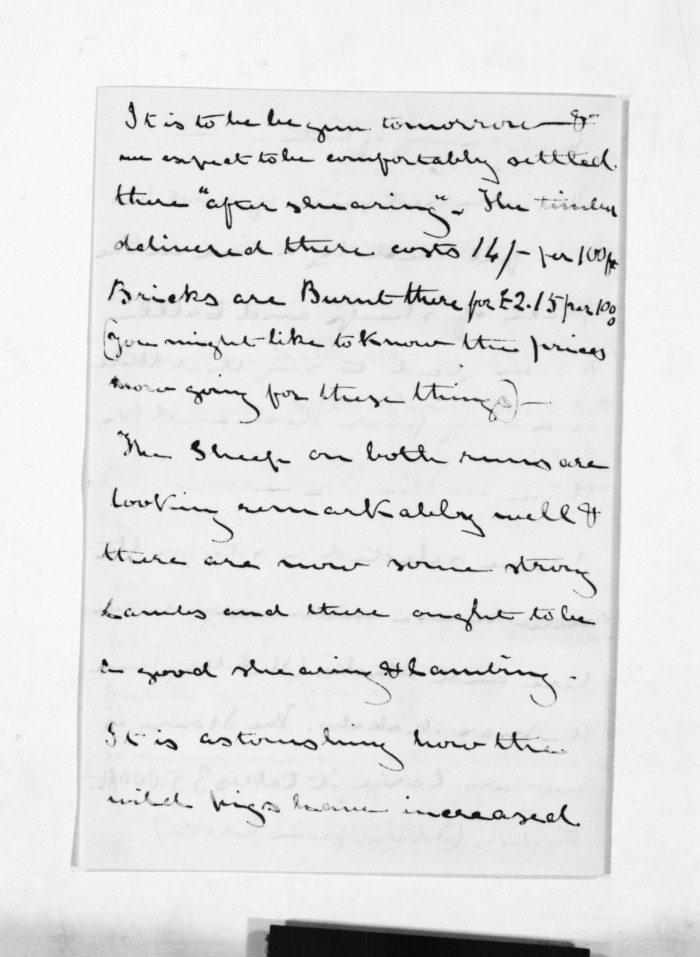 It is to be begun tomorrow — &
we expect to be comfortably settled
there "after shearing". The timber
delivered there costs 14/- per 100 ft
Bricks are Burnt there for £2.15 per 1000
(you might like to know the prices
now going for these things) —
The Sheep on both runs are
looking remarkably well &
there are now some strong
Lambs and there ought to be
a good shearing & Lambing.
It is astonishing how the
wild pigs have increased